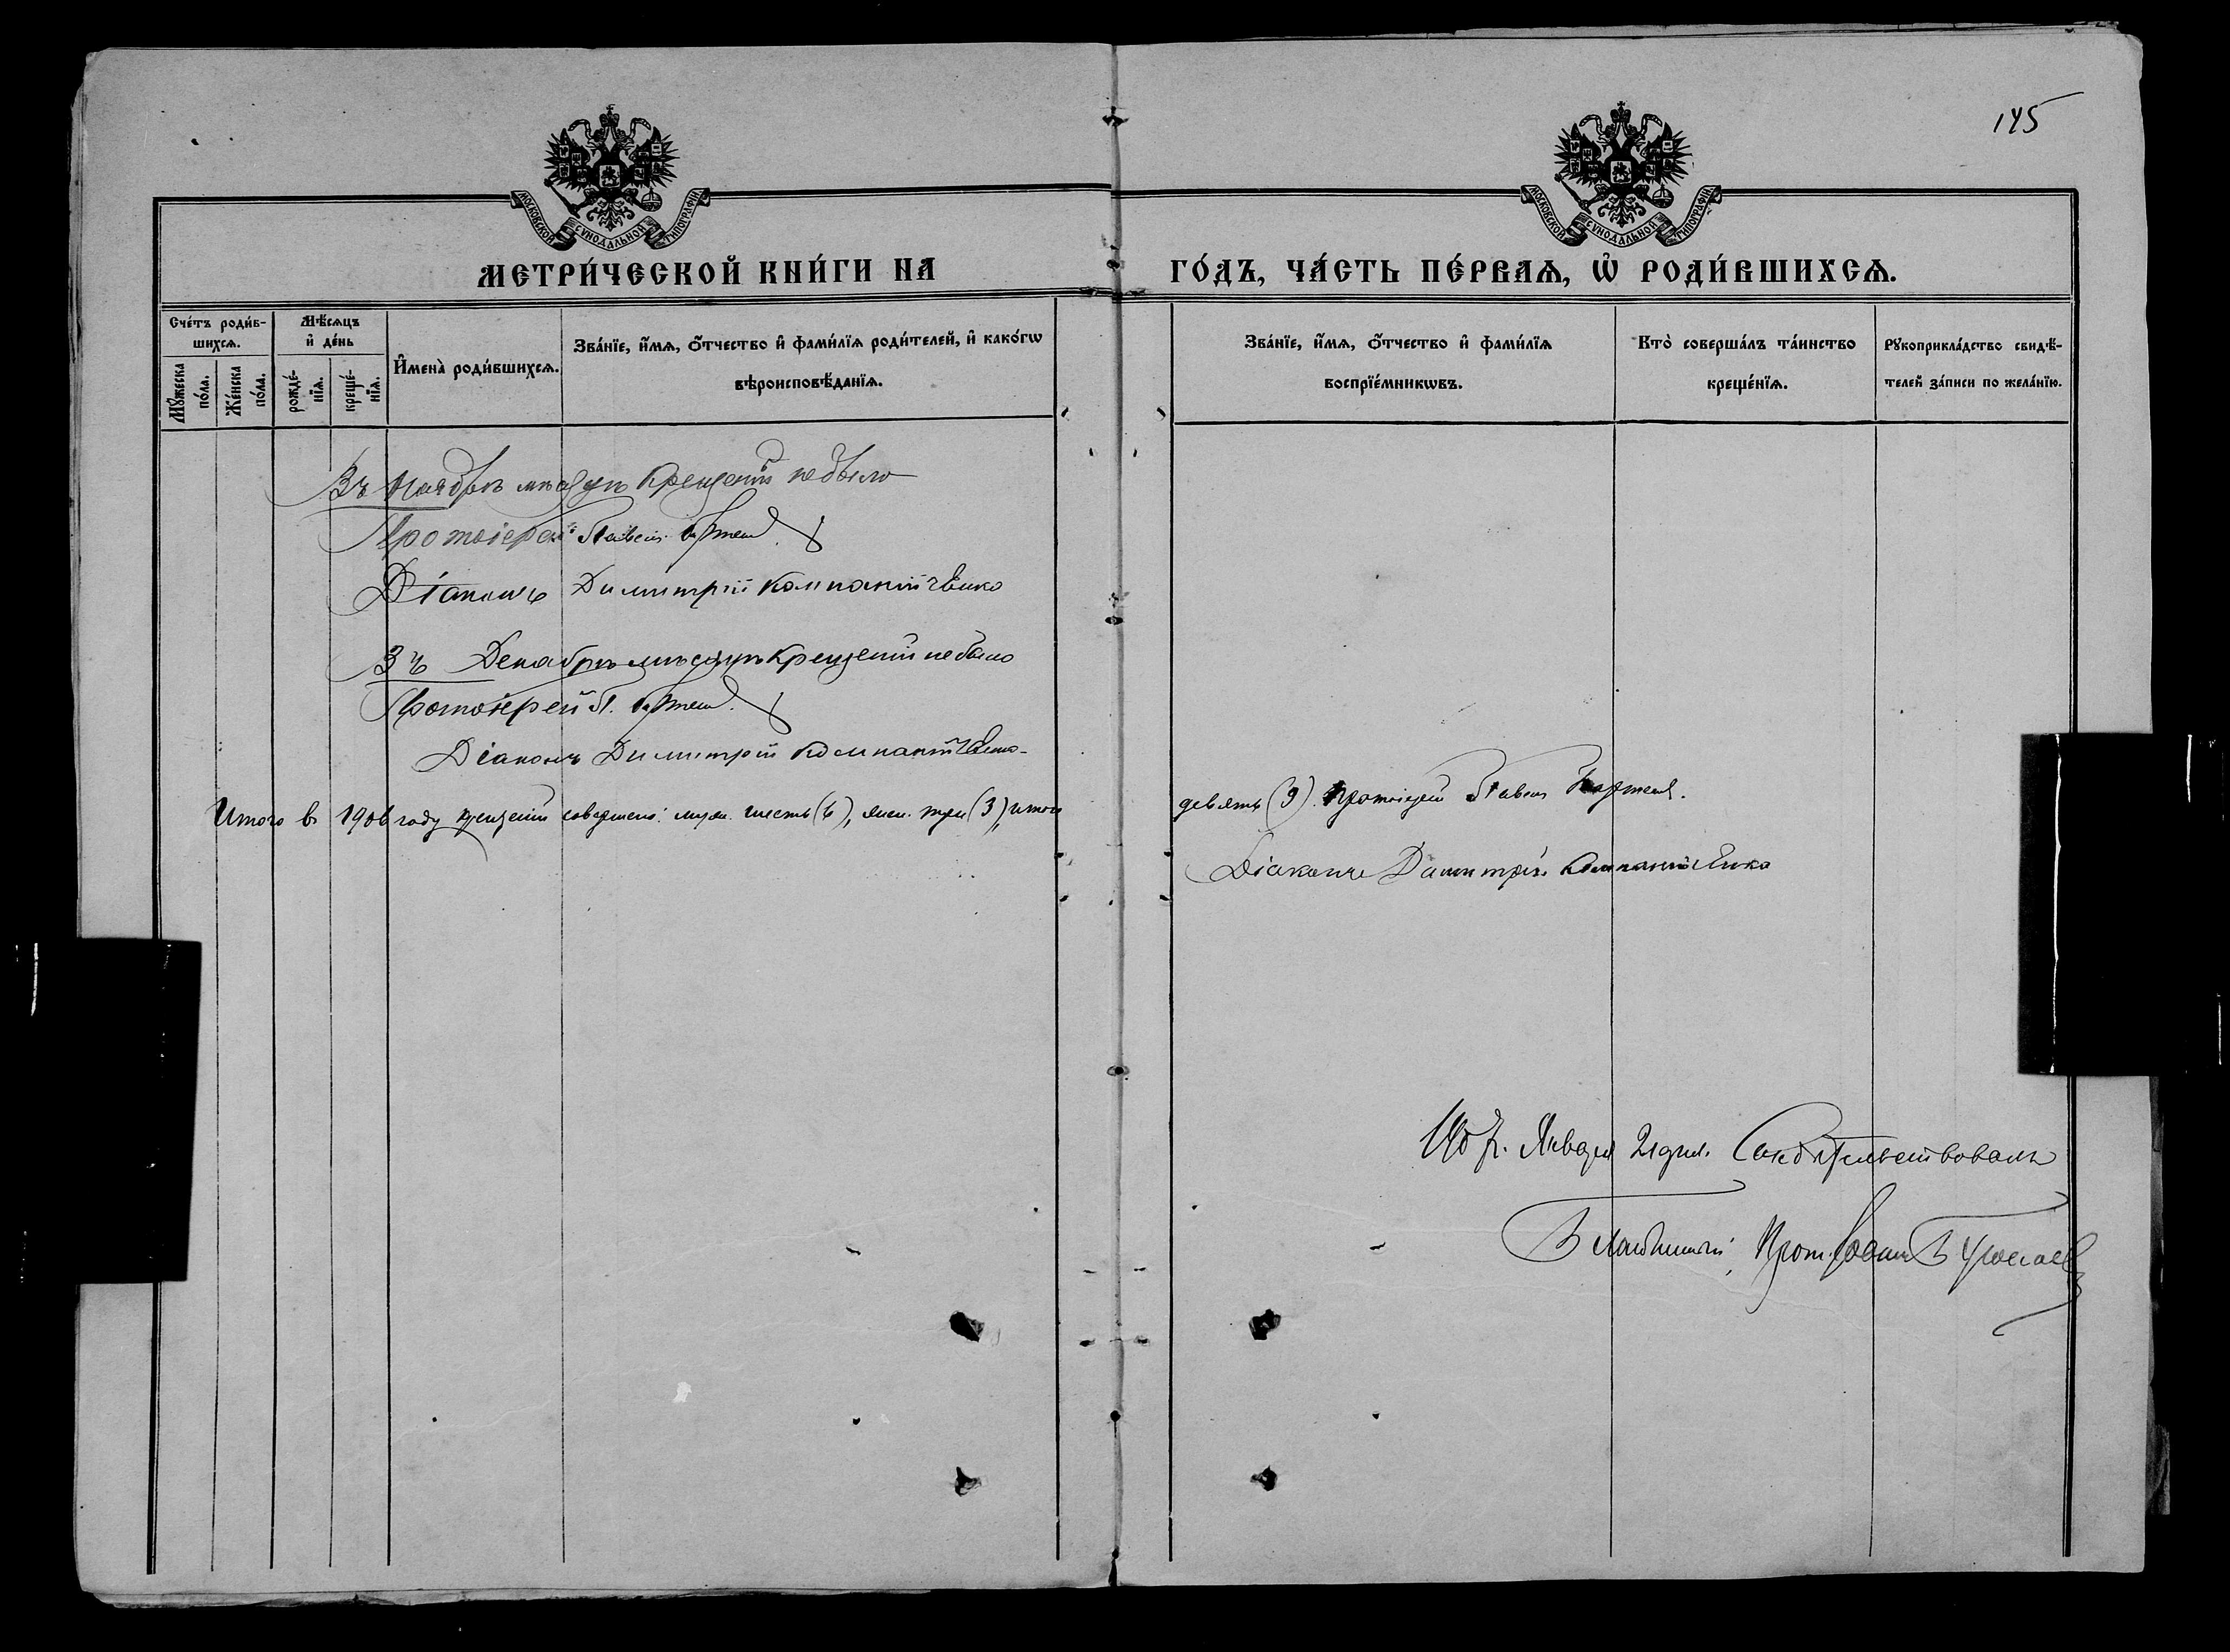 145
МОСКОВСКОЙ СѴНОДАЛЬНОЙ ТИПОГРАФІИ
МОСКОВСКОЙ СѴНОДАЛЬНОЙ ТИПОГРАФІИ
МЕТРИ́ЧЕСКОЙ КНИ́ГИ НА ГО́ДЪ, ЧА́СТЬ ПЕ́РВАѦ, Ѡ҆ РОДИ́ВШИХСѦ.
Сче́тъ роди́вшихсѧ.
Мꙋ́жеска по́ла.
Же́нска по́ла.
Мѣ́сѧцъ и҆ де́нь
рожде́нїѧ.
креще́нїѧ.
И҆мена̀ роди́вшихсѧ.
Зва́нїе, и҆́мѧ, ѻ҆́тчество и҆ фами́лїѧ роди́телей, и҆ како́гѡ
вѣроисповѣ́данїѧ.
Зва́нїе, и҆́мѧ, ѻ҆́тчество и҆ фами́лїѧ
воспрїе́мникѡвъ.
Кто̀ соверша́лъ та́инство
креще́нїѧ.
Рꙋкоприкла́дство свидѣ́телей за́писи по жела́нїю.
Въ Ноябрѣ мѣсяцѣ крещеній не было
Протоіерей Павелъ
Діаконъ Димитрій Компанійченко
Въ Декабрѣ мѣсяцѣ крещеній не было
Протоіерей П.
Діаконъ Димитрій Компанійченко
Итого въ 1906 году крещеній совершено: муж. шесть (6), жен. три (3), итого девять (9). Протоіерей Павелъ
Діаконъ Димитрій Компанійченко
1907 г. Января 21 дня. Свидѣтельствовалъ
Благочинный, Прот. Іоаннъ